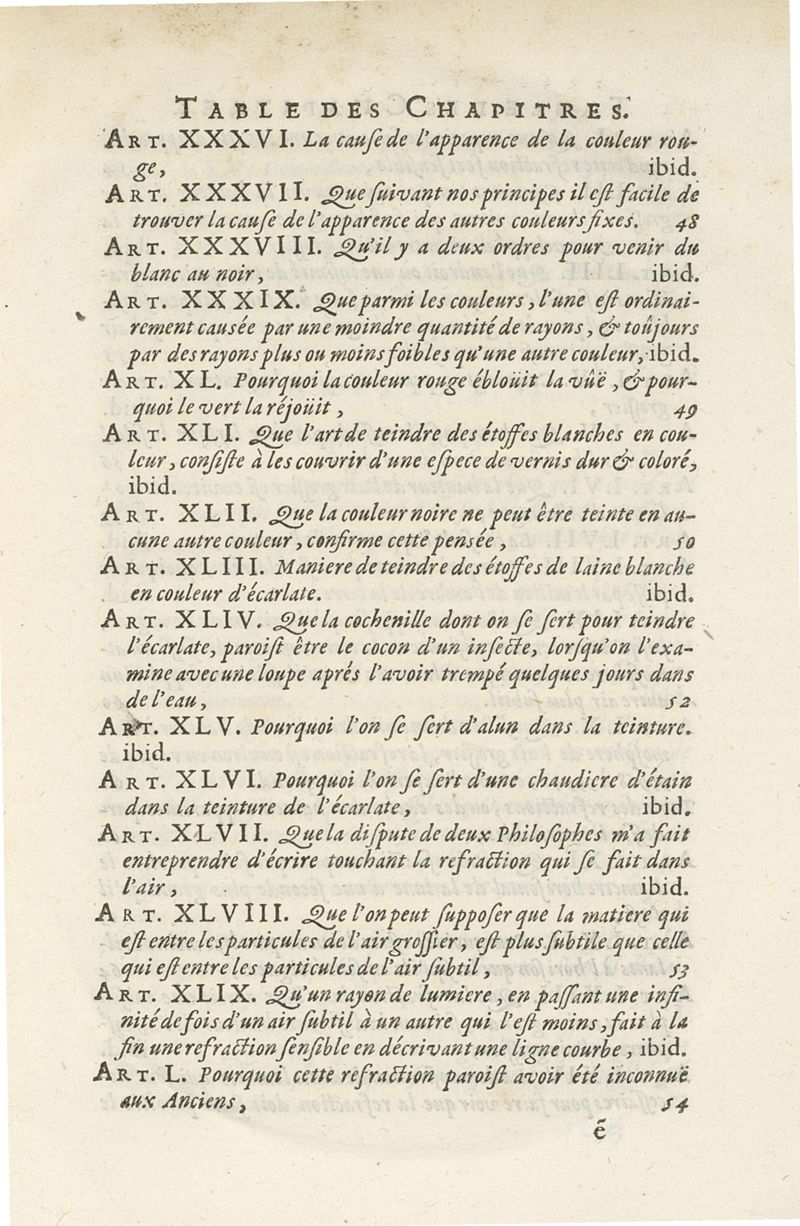 TABLE DES CHAPITRES.
ART. XXXVI. La cauſe de l'apparence de la couleur rou-
ge, ibid.
ART. XXXVII. Que ſuivant nos principes il eſt facile de
trouver la cauſe de l'apparence des autres couleurs fixes. 48
ART. XXXVIII. Qu'il y a deux ordres pour venir du
blanc au noir, ibid.
ART. XXXIX. Que parmi les couleurs, l'une eſt ordinai-
rement causée par une moindre quantité de rayons, & toûjours
par des rayons plus ou moins foibles qu'une autre couleur, ibid.
ART. XL. Pourquoi la couleur rouge ébloüit la vûë, & pour-
quoi le vert la réjoüit, 49
ART. XLI. Que l'art de teindre des étoffes blanches en cou-
leur, conſiſte à les couvrir d'une eſpece de vernis dur & coloré,
ibid.
ART. XLII. Que la couleur noire ne peut être teinte en au-
cune autre couleur, confirme cette pensée, 50
ART. XLIII. Maniere de teindre des étoffes de laine blanche
en couleur d'écarlate. ibid.
ART. XLIV. Que la cochenille dont on ſe ſert pour teindre
l'écarlate, paroiſt être le cocon d'un inſecte, lorſqu'on l'exa-
mine avec une loupe aprés l'avoir trempé quelques jours dans
de l'eau, 52
ART. XLV. Pourquoi l'on ſe ſert d'alun dans la teinture.
ibid.
ART. XLVI. Pourquoi l'on ſe ſert d'une chaudiere d'étain
dans la teinture de l'écarlate, ibid.
ART. XLVII. Que la diſpute de deux Philoſophes m'a fait
entreprendre d'écrire touchant la refraction qui ſe fait dans
l'air, ibid.
ART. XLVIII. Que l'on peut ſuppoſer que la matiere qui
eſt entre les particules de l'air groſſier, eſt plus ſubtile que celle
qui eſt entre les particules de l'air ſubtil, 53
ART. XLIX. Qu'un rayon de lumiere, en paſſant une infi-
nité de fois d'un air ſubtil à un autre qui l'eſt moins, fait à la
fin une refraction ſenſible en décrivant une ligne courbe, ibid.
ART. L. Pourquoi cette refraction paroiſt avoir été inconnuë
aux Anciens, 54
ẽ